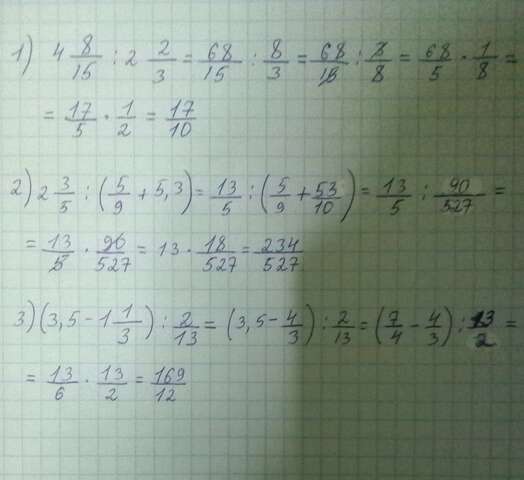 1) 4 8/15 : 2 2/3 = 68/15 : 8/3 = 68/15 : 3/8 = 68/5 · 1/8 =
= 17/5 · 1/2 = 17/10
2) 2 3/5 : (5/9 + 5,3) = 13/5 : (5/9 + 53/10) = 13/5 : 90/527 =
= 13/5 · 90/527 = 13 · 18/527 = 234/527
3) (3,5 - 1 1/3) : 2/13 = (3,5 - 4/3) : 2/13 = (7/4 - 4/3) : 13/2 =
= 13/6 · 13/2 = 169/12